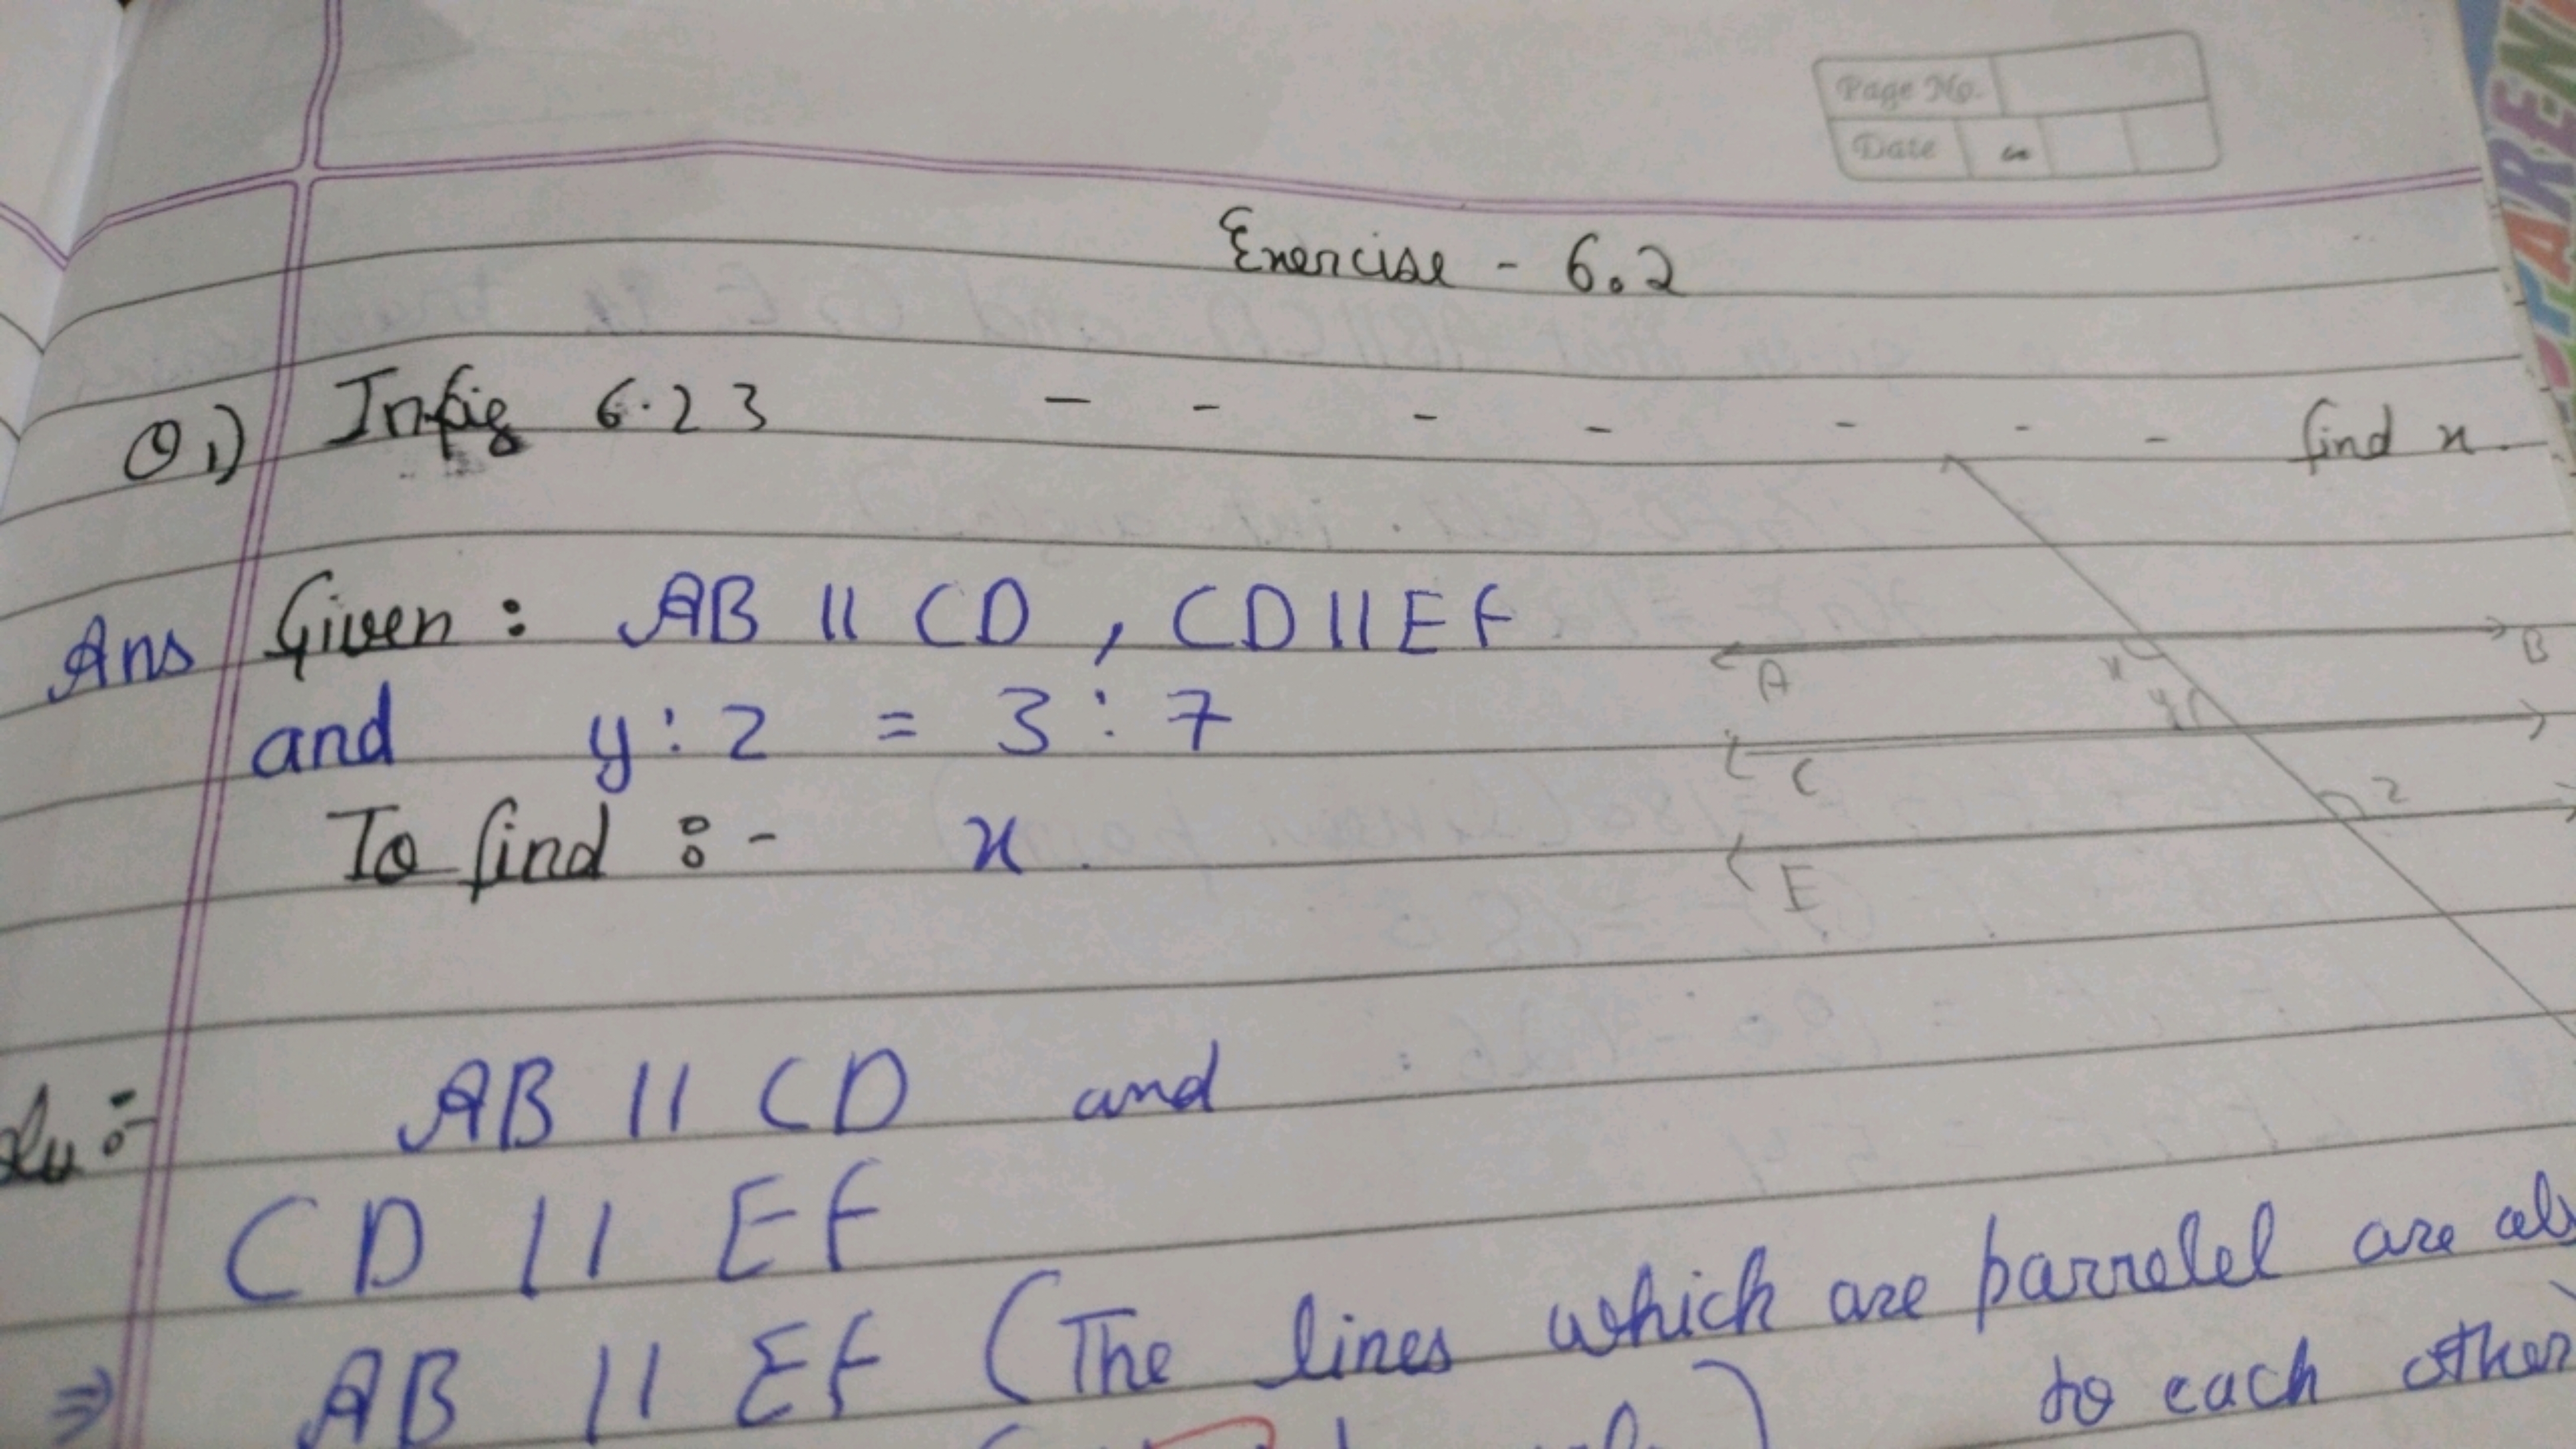 Page No.
Date
Exercise - 6.2
Q1) In fig 6.23 - - - - - - - find x.
Ans Given : AB || CD , CD || EF
and y : z = 3 : 7
To find :- x
A B
x
y
C
z
E
AB || CD and
CD || EF
⇒ AB || EF (The lines which are parrelel are
to each other